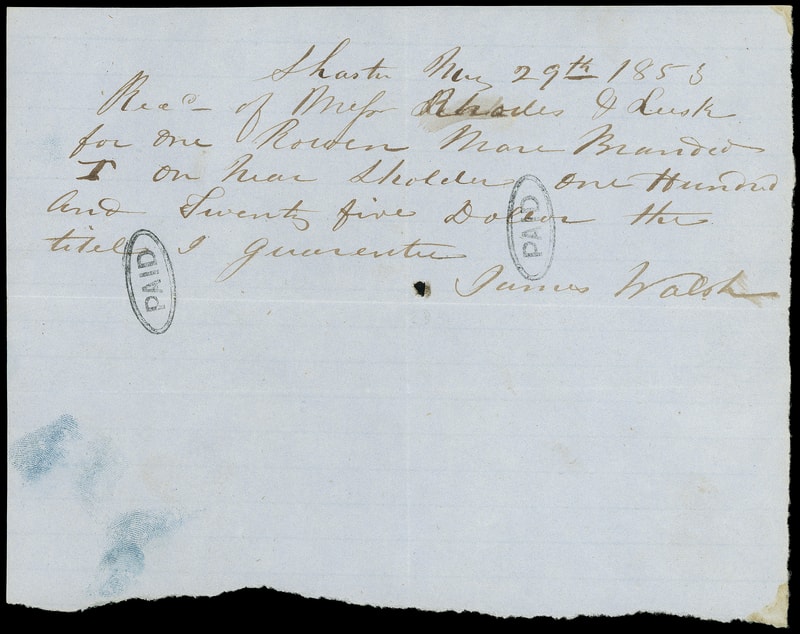 Shasta May 29th 1853
Recd of Messr Rhodes & Lusk
for one Rowen Mare Branded
I on near Sholder one Hundred
And Twenty five Dollar the
titel I guarentee
James Walsh
PAID
PAID